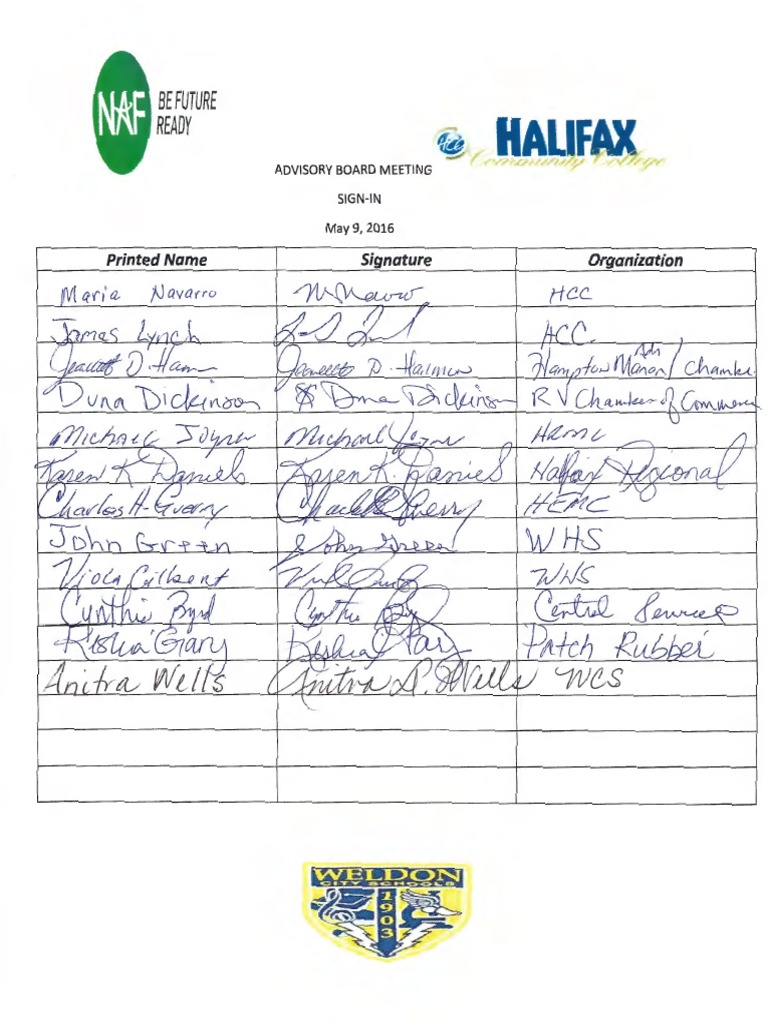 NAF BE FUTURE
READY
HCC HALIFAX
Community College
ADVISORY BOARD MEETING
SIGN-IN
May 9, 2016
Printed Name Signature Organization
Maria Navarro HCC
James Lynch ACC.
D. Jeanette D. Hampton Manor / Chamber
Duna Dickinson Dickinson RV Chamber of Commerce
Michael Joyner Michael Joyner HRMC
Karen K Daniels Karen K. Daniels Halifax Regional
Charles H. Guerry Charles H Guerry HEMC
John Green John Green WHS
Viola Gilbert WHS
Cynthia Byrd Cynthia Central Services
Kisha Gary Kisha Gary Patch Rubber
Anitra Wells Anitra D. Wells WCS
WELDON
CITY SCHOOLS
1903